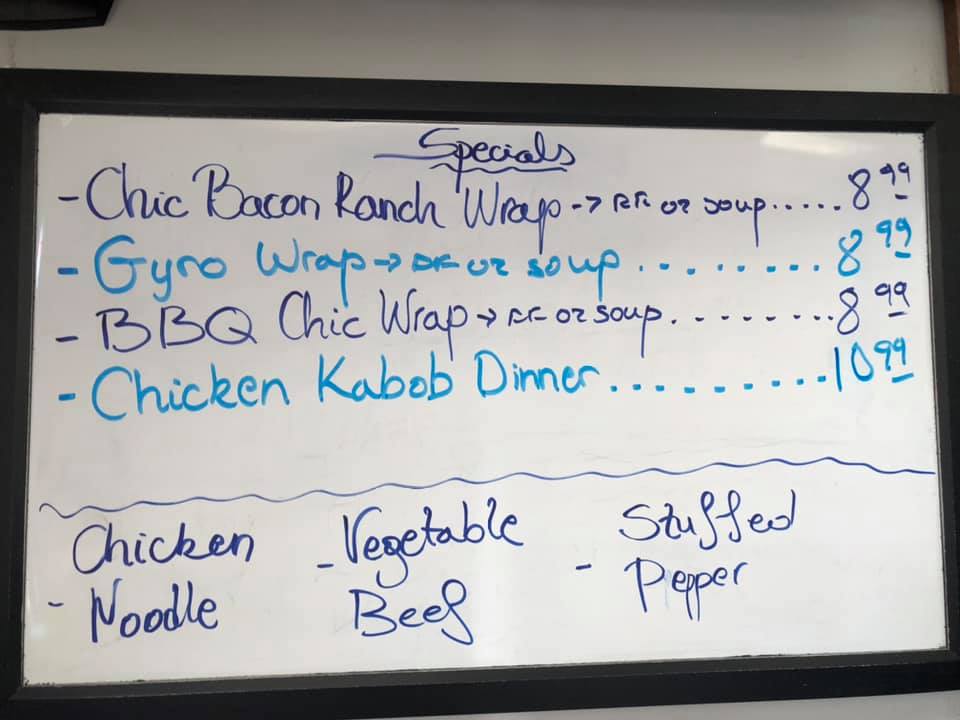 Specials
- Chic Bacon Ranch Wrap → FF or soup..... 8 99
- Gyro Wrap → FF or soup......... 8 99
- BBQ Chic Wrap → FF or soup........ 8 99
- Chicken Kabob Dinner.......... 10 99
Chicken - Vegetable - Stuffed
- Noodle Beef Pepper